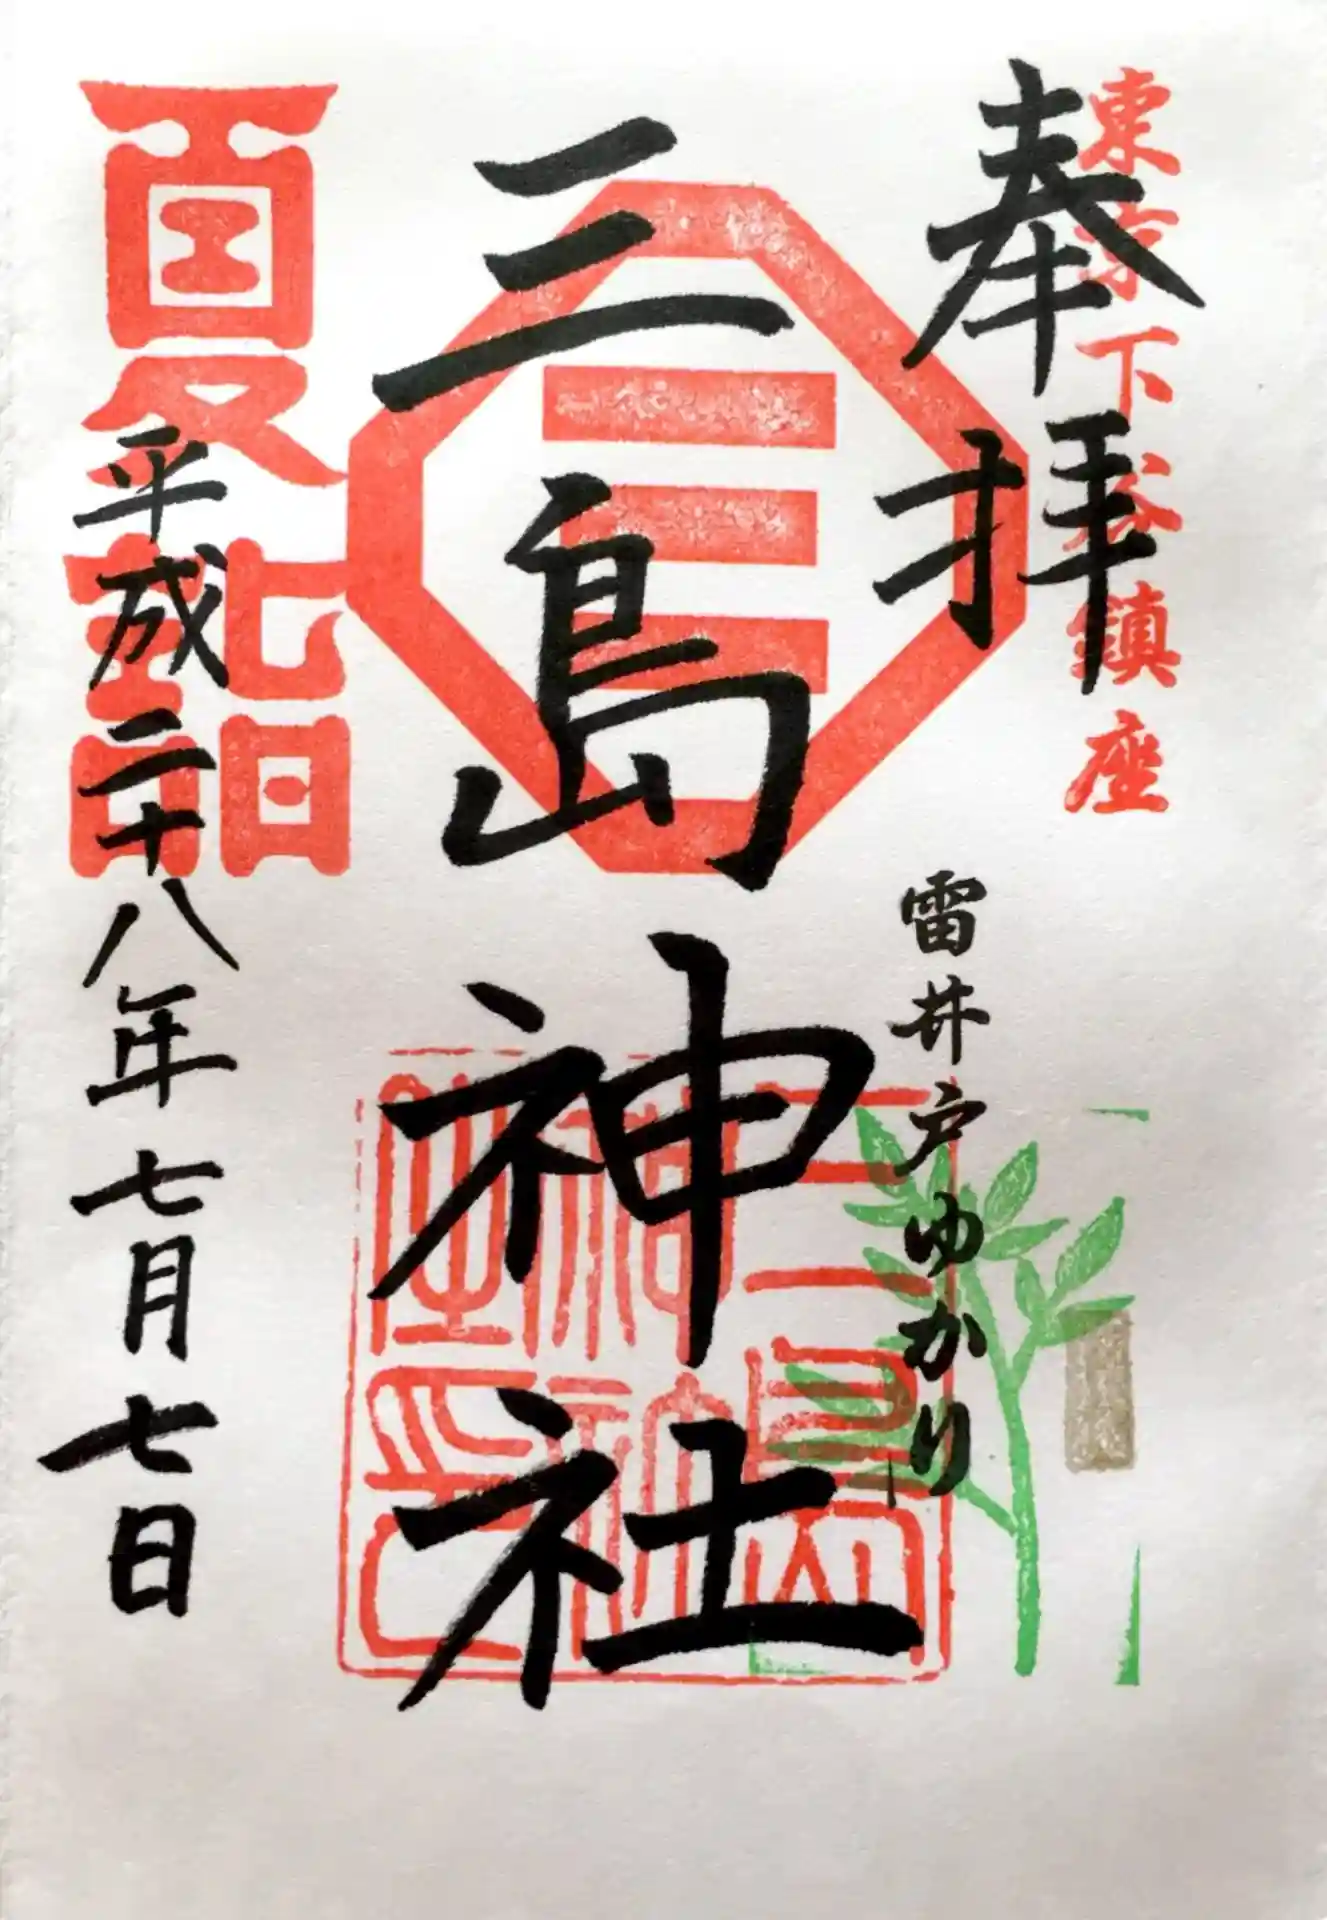 東京下谷鎮座
奉拝
雷井戸ゆかり
三島神社
夏詣
平成二十八年七月七日